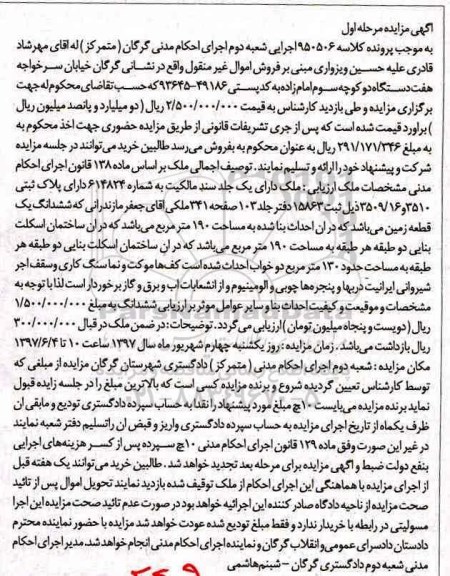 آگهی مزایده مرحله اول
به موجب پرونده کلاسه ۹۵۰۵۰۶ اجرایی شعبه دوم اجرای احکام مدنی گرگان ( متمرکز ) له آقای مهرشاد
قادری علیه حسین ویزواری مبنی بر فروش اموال غیر منقول واقع در نشانی گرگان خیابان سرخواجه
هفت دستگاه دو کوچه سوم امام زاده به کدپستی ۴۹۱۸۶-۹۳۶۴۵ که حسب تقاضای محکوم له جهت
برگزاری مزایده و طی بازدید کارشناس به قیمت ۲/۵۰۰/۰۰۰/۰۰۰ ریال ( دو میلیارد و پانصد میلیون ریال
) برآورد قیمت شده است که پس از جری تشریفات قانونی از طریق مزایده حضوری جهت اخذ محکوم به
به مبلغ ۲۹۱/۱۷۱/۳۴۶ ریال به عنوان محکوم به بفروش می‌رسد طالبین خرید می‌توانند در جلسه مزایده
شرکت و پیشنهاد خود را ارائه و تسلیم نمایند. توصیف اجمالی ملک بر اساس ماده ۱۳۸ قانون اجرای احکام
مدنی مشخصات ملک ارزیابی : ملک دارای یک جلد سند مالکیت به شماره ۶۱۴۸۲۴ دارای پلاک ثبتی
۳۵۱۰ و ۳۵۰۹/۱۶ ذیل ثبت ۱۵۸۶۳ دفتر جلد ۱۰۳ صفحه ۳۴۱ ملکی آقای جعفر مازندرانی که ششدانگ یک
قطعه زمین می‌باشد که در آن احداث بنا شده به مساحت ۱۹۰ متر مربع می‌باشد که در آن ساختمان اسکلت
بنایی دو طبقه هر طبقه به مساحت ۱۹۰ متر مربع می‌باشد که در آن ساختمان اسکلت بنایی دو طبقه هر
طبقه به مساحت حدود ۱۳۰ متر مربع دو خواب احداث شده است کف‌ها موکت و نما سنگ کاری و سقف اجر
شیروانی ایرانیت دربها و پنجره‌ها چوبی و آلومینیوم و از انشعابات آب و برق و گاز برخوردار است لذا با توجه به
مشخصات و موقعیت و کیفیت احداث بنا و سایر عوامل موثر بر ارزیابی ششدانگ به مبلغ ۱/۵۰۰/۰۰۰/۰۰۰
ریال ( دویست و پنجاه میلیون تومان ) ارزیابی می‌گردد. توضیحات : در ضمن ملک در قبال ۳۰۰/۰۰۰/۰۰۰
ریال بازداشت می‌باشد. زمان مزایده : روز یکشنبه چهارم شهریور ماه سال ۱۳۹۷ ساعت ۱۰ تا ۱۳۹۷/۶/۴
مکان مزایده : شعبه دوم اجرای احکام مدنی ( متمرکز ) دادگستری شهرستان گرگان مزایده از مبلغی که
توسط کارشناس تعیین گردیده شروع و برنده مزایده کسی است که بالاترین مبلغ را در جلسه زایده قبول
نماید برنده مزایده می‌بایست ۱۰چ مبلغ مورد پیشنهاد را نقدا به حساب سپرده دادگستری تودیع و مابقی آن
ظرف یکماه از تاریخ اجرای مزایده به حساب سپرده دادگستری واریز و قبض آن را تسلیم دفتر شعبه نمایند
در غیر این صورت وفق ماده ۱۲۹ قانون اجرای احکام مدنی ۱۰چ سپرده پس از کسر هزینه‌های اجرایی
بنفع دولت ضبط و آگهی مزایده برای مرحله بعد تجدید خواهد شد. طالبین خرید می‌توانند یک هفته قبل
از اجرای مزایده با هماهنگی این اجرای احکام از ملک توقیف شده بازدید نمایند تحویل اموال پس از تائید
صحت مزایده از ناحیه دادگاه صادر کننده این اجرائیه خواهد بود در صورت عدم تائید صحت مزایده این اجرا
مسولیتی در رابطه با خریدار ندارد و فقط مبلغ تودیع شده عودت خواهد شد مزایده با حضور نماینده محترم
دادستان دادسرای عمومی و انقلاب گرگان و نماینده اجرای احکام مدنی انجام خواهد شد. مدیر اجرای احکام
مدنی شعبه دوم دادگستری گرگان – شبنم هاشمی